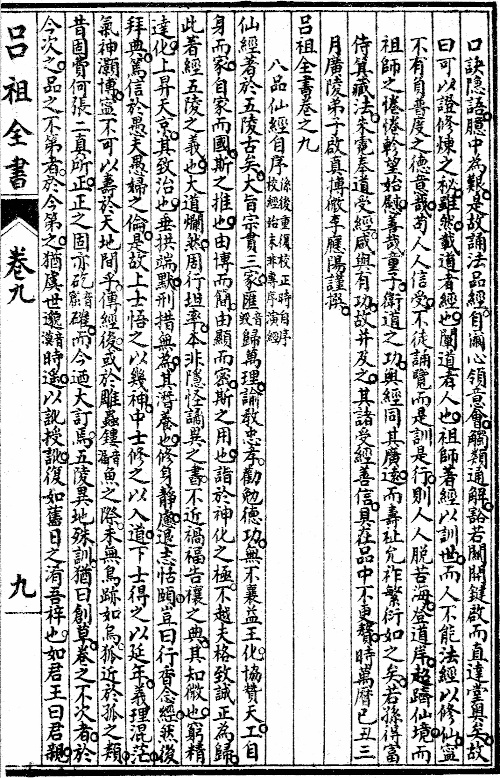 口訣隱語臆中為艱是故誦法品經自爾心領意會觸類通解豁若關開鍵啟而直達堂奧矣故
曰可以證修煉之秘雖然載道者經也闡道者人也祖師著經以訓世而人不能法經以修仙寧
不有自普度之德意哉苟人人信受不徒誦覽而是訓是行則人人脫苦海登道岸超躋仙境而
祖師之惓惓軫望始慰善哉童子衛道之功與經同其廣遠而壽祉允祚繁衍如之矣若孫得富
侍箕藏法朱霓奉道受經咸與有功故并及之其諸受經善信具在品中不更贅時萬曆己丑三
月廣陵弟子啟真搏微李應陽謹撰
呂祖全書卷之九
八品仙經自序 係後重復校正時自序校經始末非專序演經
仙經著於五陵古矣大旨宗貫三家匯音毀歸萬理諭敎忠孝勸勉德功無不襄益王化協贊天工自
身而家自家而國斯之推也由博而簡由顯而密斯之用也詣於神化之極不越夫格致誠正為歸
此著經五陵之義也大道爛然周行坦率本非隱怪譎異之書不近禍福告禳之典其知微也窮精
達化上昇天京其致治也垂拱端默刑措無為其潛養也修身靜慮退志恬頤豈曰行香念經然後
拜典篤信於愚夫愚婦之倫是故上士悟之以幾神中士修之以入道下士得之以延年義理混茫
氣神灝博寧不可以壽於天地間乎傳經後或於雕蟲鏤音漏魚之際禾無焉跡如烏狐近於孤之類
昔固費何張二真所正正之固亦矻音窟確而今迺大訂焉五陵異地殊訓猶曰創草卷之不次者於
今次之品之不第者於今第之猶虞世邈音漠時遙以訛授訛復如舊日之淆吾梓也如君王曰君親
呂祖全書
卷九
九